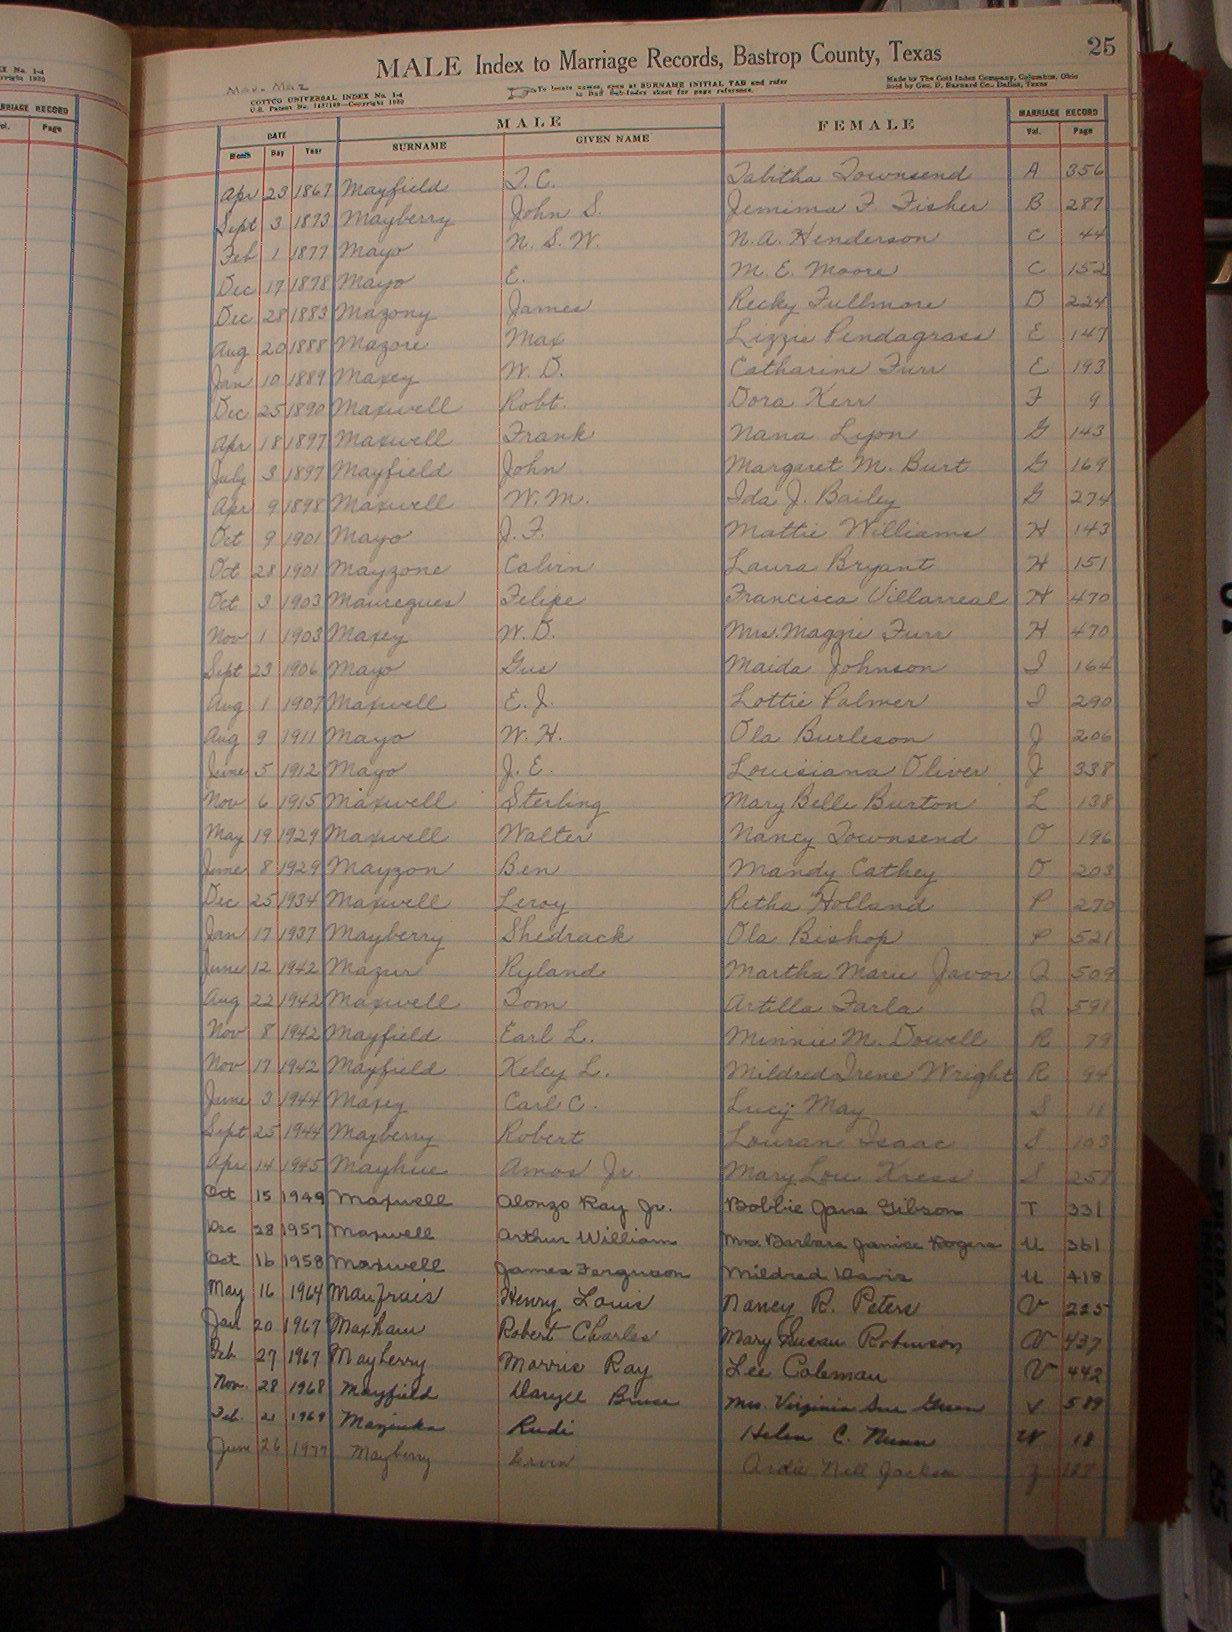 25
MALE Index to Marriage Records, Bastrop County, Texas
Max - Maz
COTTCO UNIVERSAL INDEX No. 1-4
U.S. Patent No. Copyright 1920
To locate names, open at SURNAME INITIAL TAB and refer
to Buff Sub-Index sheet for page reference.
Made by The Cott Index Company, Columbus, Ohio
Sold by Geo. D. Barnard Co., Dallas, Texas
DATE MALE FEMALE MARRIAGE RECORD
Month Day Year SURNAME GIVEN NAME Vol. Page
Apr 23 1867 Mayfield T. C. Tabitha Townsend A 356
Sept 3 1873 Mayberry John S. Jemima F. Fisher B 287
Feb 1 1877 Mayo N. S. W. N. A. Henderson C 44
Dec 17 1878 Mayo E. M. E. Moore C 152
Dec 28 1883 Mazony James Recky Fullmore D 224
Aug 20 1888 Mazore Max Lizzie Pendagrass E 147
Jan 10 1889 Maxey W. D. Catharine Furr E 193
Dec 25 1890 Maxwell Robt. Dora Kerr F 9
Apr 18 1897 Maxwell Frank Nana Lyon G 143
July 3 1897 Mayfield John Margaret M. Burt G 169
Apr 9 1898 Maxwell W. M. Ida J. Bailey G 274
Oct 9 1901 Mayo J. F. Mattie Williams H 143
Oct 28 1901 Mayzone Calvin Laura Bryant H 151
Oct 3 1903 Maureques Felipe Francisca Villarreal H 470
Nov 1 1903 Maxey W. D. Mrs. Maggie Furr H 470
Sept 23 1906 Mayo Gus Maida Johnson I 164
Aug 1 1907 Maxwell E. J. Lottie Palmer I 290
Aug 9 1911 Mayo W. H. Ola Burleson J 206
June 5 1912 Mayo J. E. Louisiana Oliver J 338
Nov 6 1915 Maxwell Sterling Mary Belle Burton L 138
May 19 1929 Maxwell Walter Nancy Townsend O 196
June 8 1929 Mayzon Ben Mandy Cathey O 203
Dec 25 1934 Maxwell Leroy Retha Holland P 270
Jan 17 1937 Mayberry Shedrack Ola Bishop P 521
June 12 1942 Mazur Ryland Martha Marie Javor Q 509
Aug 22 1942 Maxwell Tom Artilla Farla Q 591
Nov 8 1942 Mayfield Earl L. Minnie M. Dowell R 79
Nov 17 1942 Mayfield Keley L. Mildred Irene Wright R 94
June 3 1944 Maxey Carl C. Lucy May S 11
Sept 25 1944 Mayberry Robert Louran Isaac S 103
Apr 14 1945 Mayhue Amos Jr. Mary Lou Kress S 257
Oct 15 1949 Maxwell Alonzo Ray Jr. Bobbie Jana Gibson T 331
Dec 28 1957 Maxwell Arthur William Mrs. Barbara Janice Rogers U 361
Oct 16 1958 Maxwell James Ferguson Mildred Davis U 418
May 16 1964 Maufrais Henry Louis Nancy R. Peters V 225
Jan 20 1967 Maxham Robert Charles Mary Susan Robinson V 437
Feb. 27 1967 Mayberry Morris Ray Lee Coleman V 442
Nov. 28 1968 Mayfield Daryll Bruce Mrs. Virginia Sue Green V 589
Feb. 21 1969 Rudi Helen C. Nunn W 18
June 26 1977 Mayberry Ervin Ardie Nell Jackson
MARRIAGE RECORD
Vol. Page